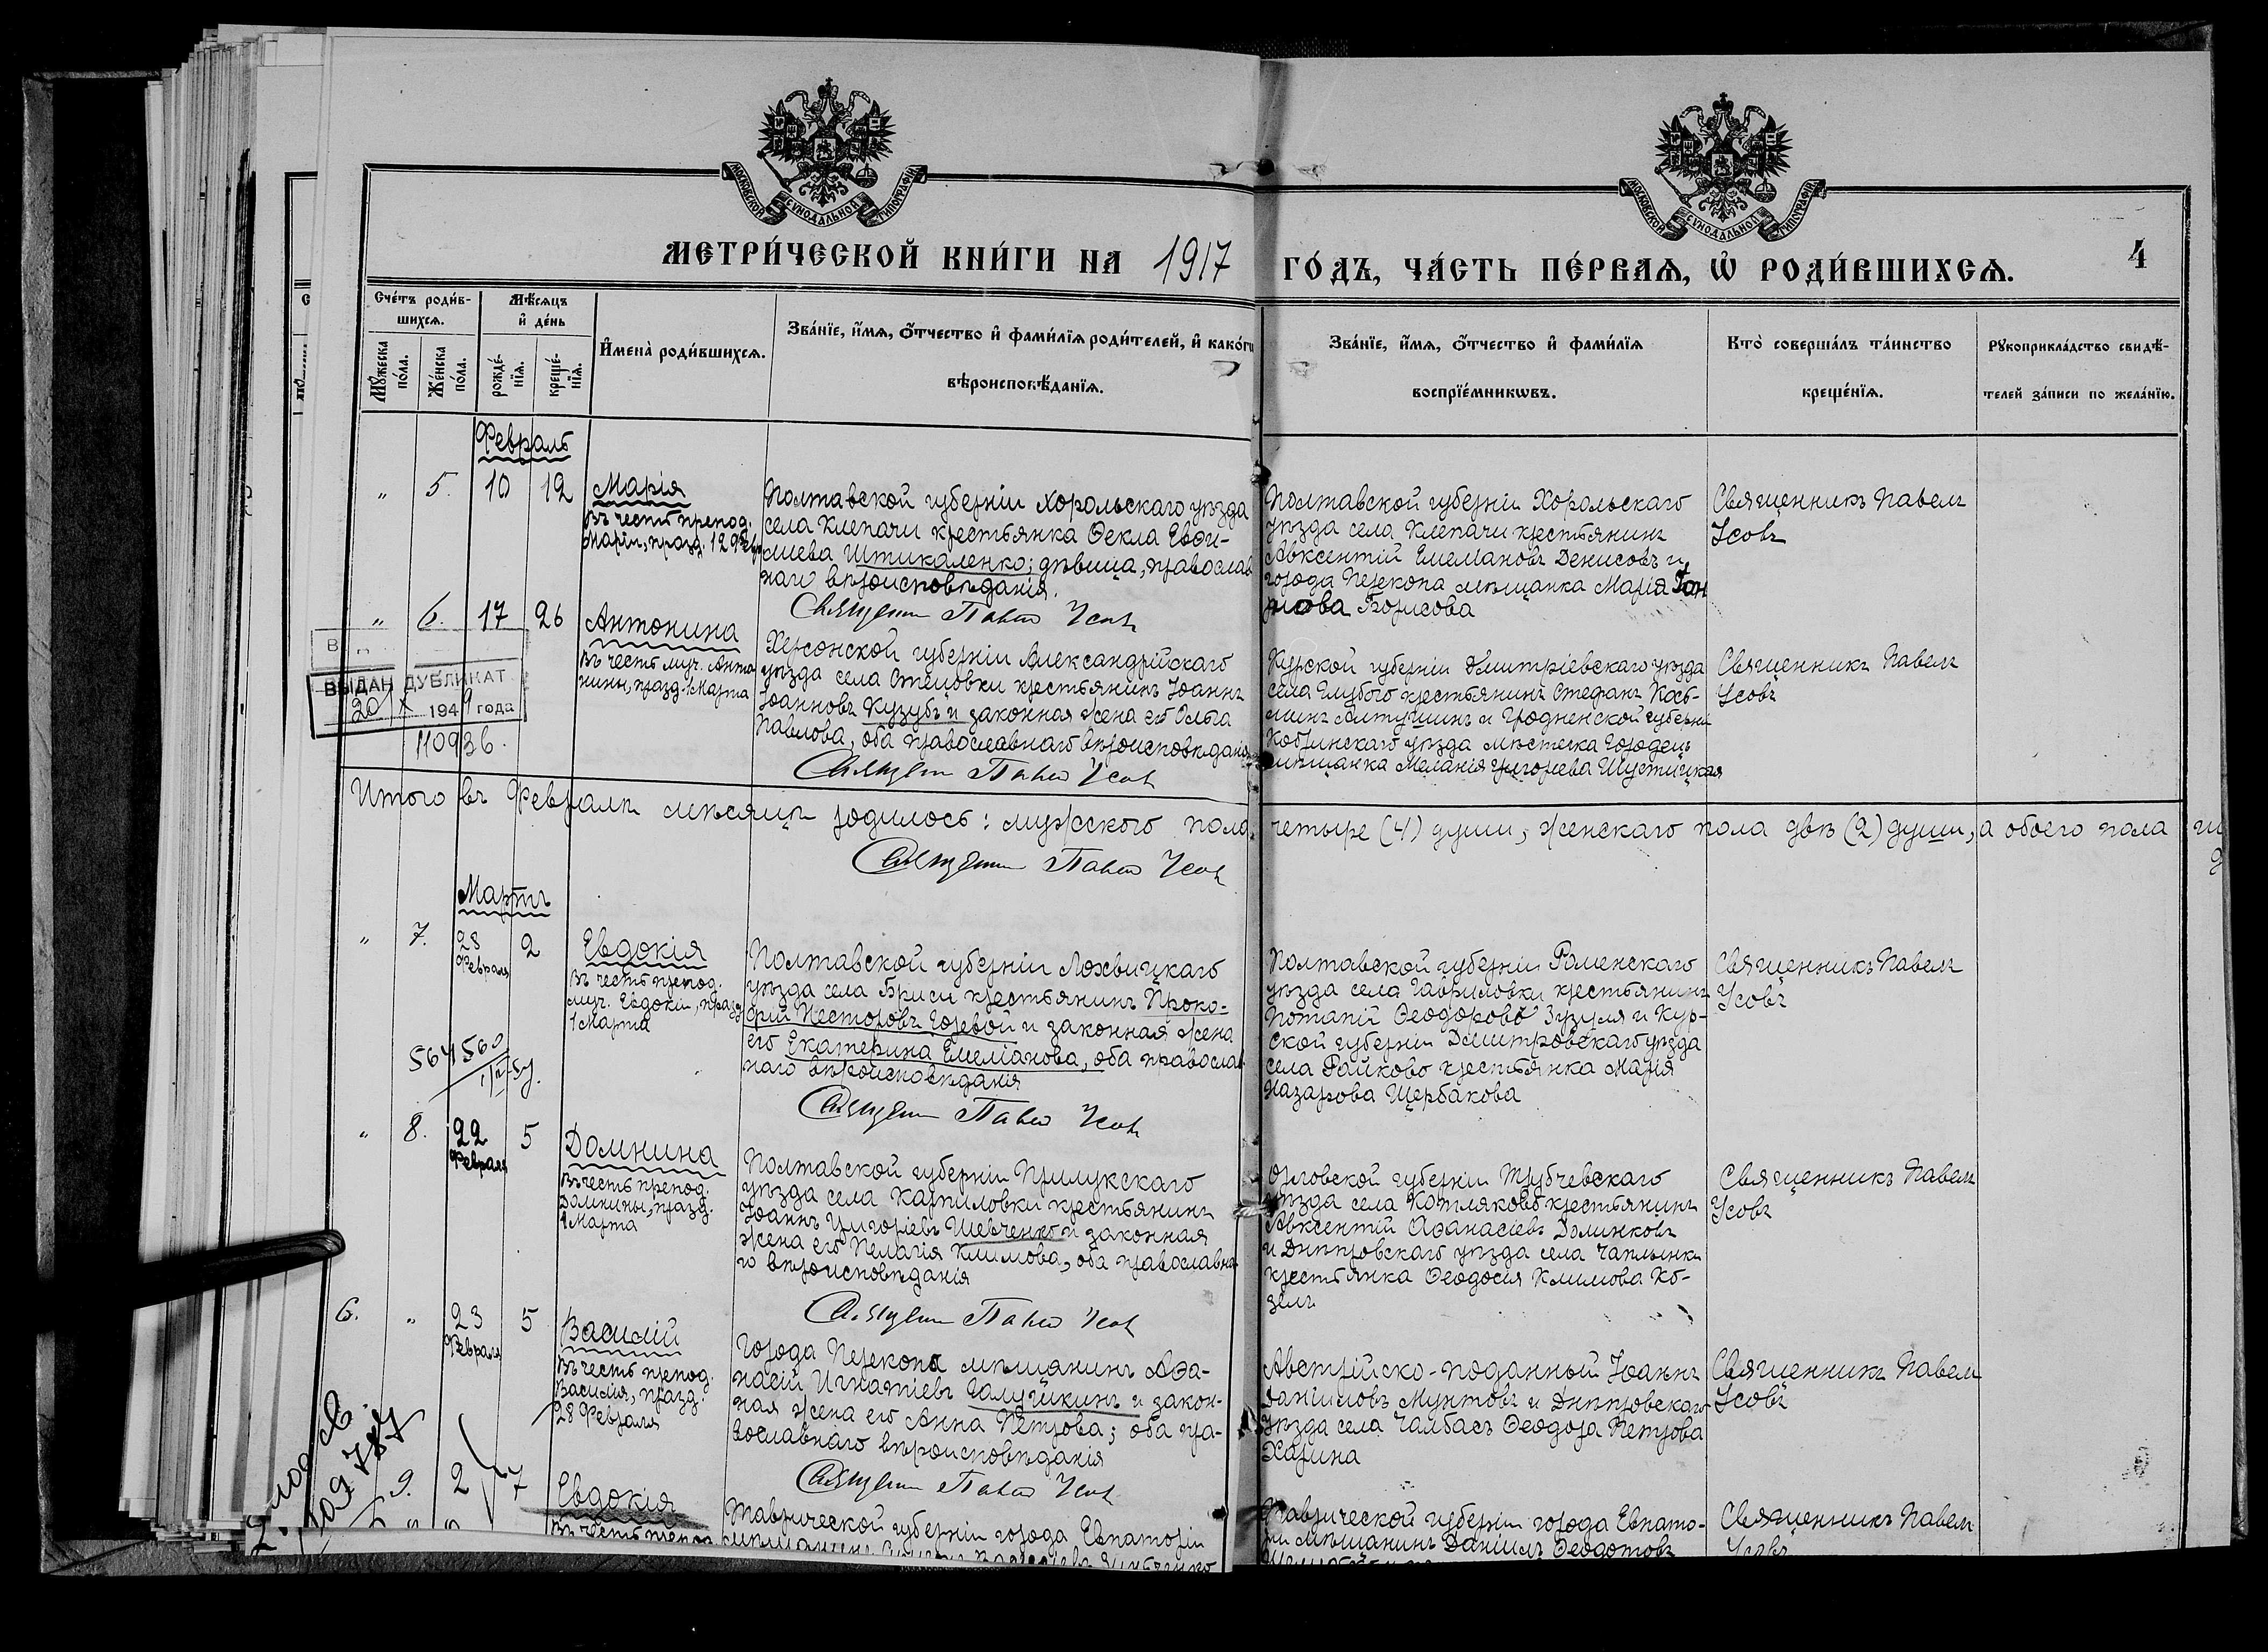 МОСКОВСКОЙ СУНОДАЛЬНОЙ ТИПОГРАФІИ
МОСКОВСКОЙ СУНОДАЛЬНОЙ ТИПОГРАФІИ
МЕТРИ́ЧЕСКОЙ КНИ́ГИ НА 1917 ГО́ДЪ, ЧА́СТЬ ПЕ́РВАѦ, Ѽ РОДИ́ВШИХСѦ.
4
Сче́тъ роди́в-
шихсѧ.
Мѣ́сѧцъ
и҆ де́нь
Мꙋ́жеска
по́ла.
Же́нска
по́ла.
рожде́-
нїѧ.
креще́-
нїѧ.
И҆мена̀ роди́вшихсѧ.
Зва́нїе, и҆́мѧ, ѻ҆́тчество и҆ фами́лїѧ роди́телей, и҆ како́гѡ
вѣроисповѣ́данїѧ.
Зва́нїе, и҆́мѧ, ѻ҆́тчество и҆ фами́лїѧ
воспрїе́мникѡвъ.
Кто̀ соверша́лъ та́инство
креще́нїѧ.
Рꙋкоприкла́дство свидѣ́-
телей за́писи по жела́нїю.
Февраль
" 5. 10 12
Марія
Въ честь препод.
Маріи, празд. 12 Февр
Полтавской губерніи Хорольскаго уѣзда
села Клепачи крестьянка Ѳекла Евѳи-
міева Штикаленко; дѣвица, православ
наго вѣроисповѣданія.
Священн Павел Усов
Полтавской губерніи Хорольскаго
уѣзда села Клепачи крестьянинъ
Авксентій Емелiановъ Денисовъ и
города Перекопа мѣщанка Марія
Борисова
Священникъ Павелъ
Усовъ
" 6. 17 26
Антонина
Въ честь муч. Анто
нины, празд. 1 Марта
Херсонской губерніи Александрійскаго
уѣзда села Стецовки крестьянинъ Іоаннъ
Іоанновъ Кузубъ и законная жена его Ольга
Павлова, оба православнаго вѣроисповѣданія
Священн Павел Усов
Курской губерніи Дмитріевскаго уѣзда
села Глубого крестьянинъ Стефанъ Кось-
минъ Алтушинъ и Гродненской губерніи
Кобринскаго уѣзда мѣстечка Городецъ
мѣщанка Меланія Григорьева Шустицкая
Священникъ Павелъ
Усовъ
ВЫДАН ДУБЛИКАТ
20 X 1949 года
110936.
Итого въ Февралѣ мѣсяцѣ родилось: мужского пола четыре (4) души, женскаго пола двѣ (2) души, а обоего пола
Священн Павел Усов
Мартъ
" 7. 28 2
Февраля
Евдокія
Въ честь препод.
муч. Евдокіи, празд
1 Марта
564560
Полтавской губерніи Лохвицкаго
уѣзда села Бриси крестьянинъ Проко-
фій Несторовъ Горевой и законная жена
его Екатерина Емеліанова, оба православ
наго вѣроисповѣданія
Священн Павел Усов
Полтавской губерніи Роменскаго
уѣзда села Гавриловки крестьянинъ
Потапій Ѳеодоровъ Зузуля и Кур-
ской губерніи Дмитровскаго уѣзда
села Райково крестьянка Марія
Назарова Щербакова
Священникъ Павелъ
Усовъ
" 8. 22 5
Февраля
Домнина
Въ честь препод.
Домнины, празд.
1 Марта
Полтавской губерніи Прилукскаго
уѣзда села Карпиловки крестьянинъ
Іоаннъ Григоріевъ Шевченко и законная
жена его Пелагія Климова, оба православна
го вѣроисповѣданія
Священн Павел Усов
Орловской губерніи Трубчевскаго
уѣзда села Котляково крестьянинъ
Авксентій Аѳанасіевъ Долинковъ
и Днѣпровскаго уѣзда села Чаплынки
крестьянка Ѳеодосія Климова Ко-
зелъ
Священникъ Павелъ
Усовъ
6. " 23 5
Февраля
Василій
Въ честь препод.
Василія, празд.
28 Февраля
Города Перекопа мѣщанинъ Аѳа-
насій Игнатіевъ Галушкинъ и закон-
ная жена его Анна Петрова; оба пра-
вославнаго вѣроисповѣданія
Священн Павел Усов
Австрійско-поданный Іоаннъ
Даніиловъ Мунтовъ и Днѣпровскаго
уѣзда села Чалбасъ Ѳеодора Петрова
Харина
Священникъ Павелъ
Усовъ
109787
9. 2 7
Евдокія
Въ честь препод
Таврической губерніи города Евпаторіи
мѣщанинъ
Таврической губерніи города Евпато-
ріи мѣщанинъ Даніилъ Ѳеодотовъ
Священникъ Павелъ
Усовъ